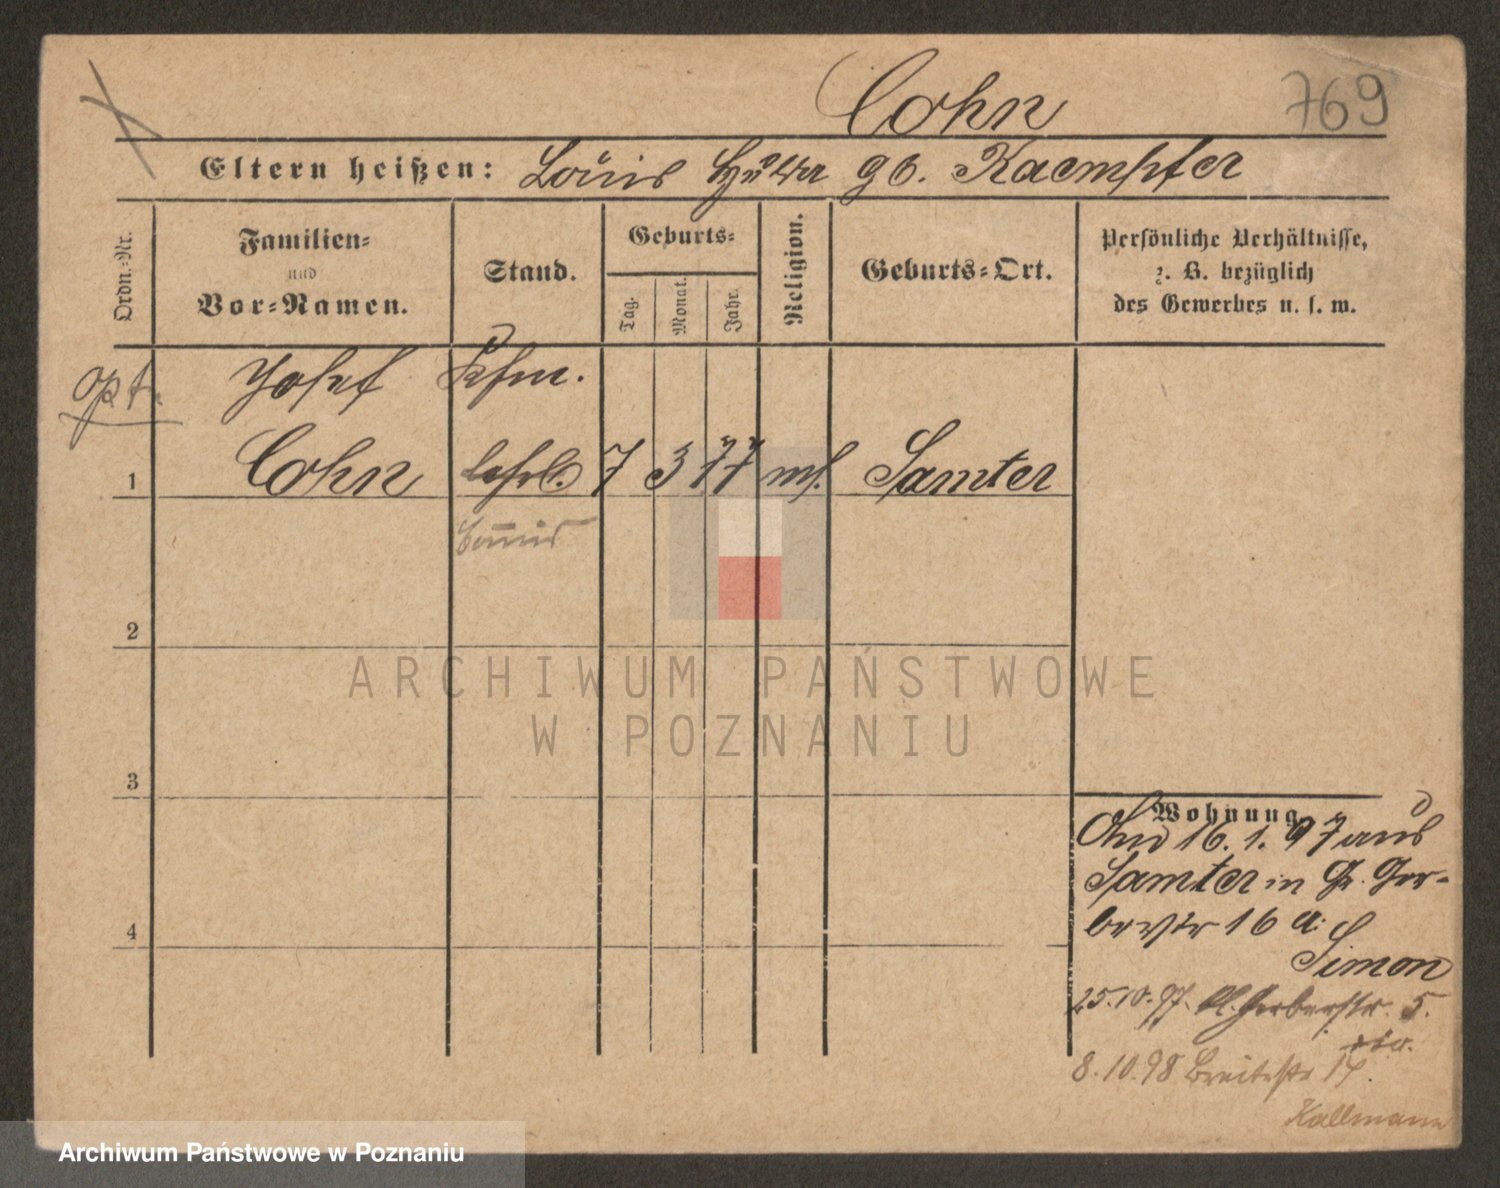 Cohn
769
Eltern heißen: Louis Hulda gb. Kaempfer
Ordn.-Nr.
Familien-
und
Vor-Namen.
Stand.
Geburts-
Tag.
Monat.
Jahr.
Religion.
Geburts-Ort.
Persönliche Verhältnisse,
z. B. bezüglich
des Gewerbes u. s. w.
opt.
Josef Kfm.
1 Cohn 7 3 77 mos. Samter
2
3
4
Wohnung
16.1.97 aus
Samter in Gr. Ger-
berstr 16 a.
Simon
25.10.97. Kl. Gerberstr. 5.
8.10.98 Breitestr 14.
Kallmann
ARCHIWUM PAŃSTWOWE
W POZNANIU
Archiwum Państwowe w Poznaniu